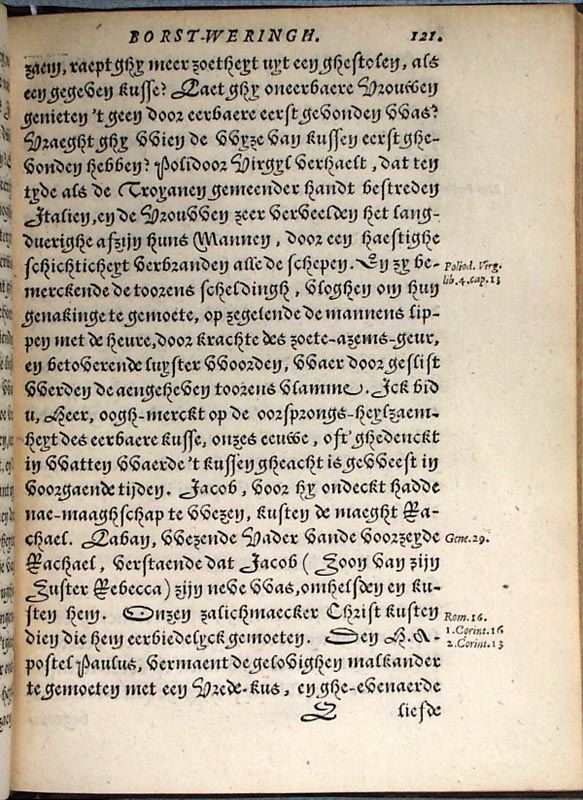 BORST-WERINGH. 121.
zaem, raept ghy meer zoetheyt uyt een ghestolen, als
een gegeven kusse? Laet ghy oneerbaere Vrouwen
genieten 't geen door eerbaere eerst gevonden VVas?
Vraeght ghy VVien de VVyze van kussen eerst ghe-
vonden hebben? Polidoor Virgyl verhaelt, dat ten
tyde als de Troyanen gemeender handt bestreden
Italien, en de VrouVVen zeer verveelden het lang-
duerighe afzijn huns Mannen, door een haestighe
schichticheyt verbranden alle de schepen. En zy be-
merckende de toorens scheldingh, vloghen om hun
genakinge te gemoete, op zegelende de mannens lip-
pen met de heure, door krachte des zoete-azems-geur,
en betoverende luyster VVoorden, VVaer door geslist
VVerden de aengeheven toorens vlamme. Ick bid
u, Heer, oogh-merckt op de oorsprongs-heylzaem-
heyt des eerbaere kusse, onzes eeuwe, oft ghedenckt
in VVatten VVaerde 't kussen gheacht is geVVeest in
voorgaende tijden. Jacob, voor hy ondeckt hadde
nae-maaghschap te VVezen, kusten de maeght Ra-
chael. Laban, VVezende Vader vande voorzeyde
Rachael, verstaende dat Jacob ( Zoon van zijn
Zuster Rebecca) zijn neve VVas, omhelsden en ku-
sten hem. Onzen zalichmaecker Christ kusten
dien die hem eerbiedelyck gemoeten. Den H. A-
postel Paulus, vermaent de gelovighen malkander
te gemoeten met een Vrede-kus, en ghe-evenaerde
liefde
Poliod. Virg.
lib. 4. cap. 13
Gene. 29.
Rom. 16.
1. Corint. 16
2. Corint. 13